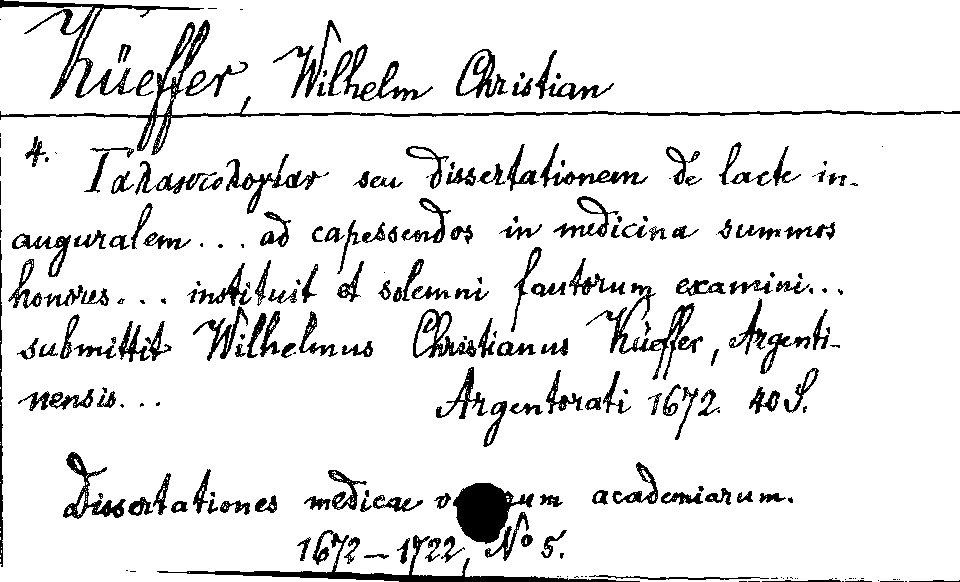 Küeffer, Wilhelm Christian
4. seu dissertationem de lacte in-
auguralem... ad capessendos in medicina summos
honores... instituit et solemni fautorum examini...
submittit Wilhelmus Christianus Küeffer, Argenti-
nensis...
Argentorati 1672. 40 S.
Dissertationes medicae academiarum.
1672-1722, No 5.